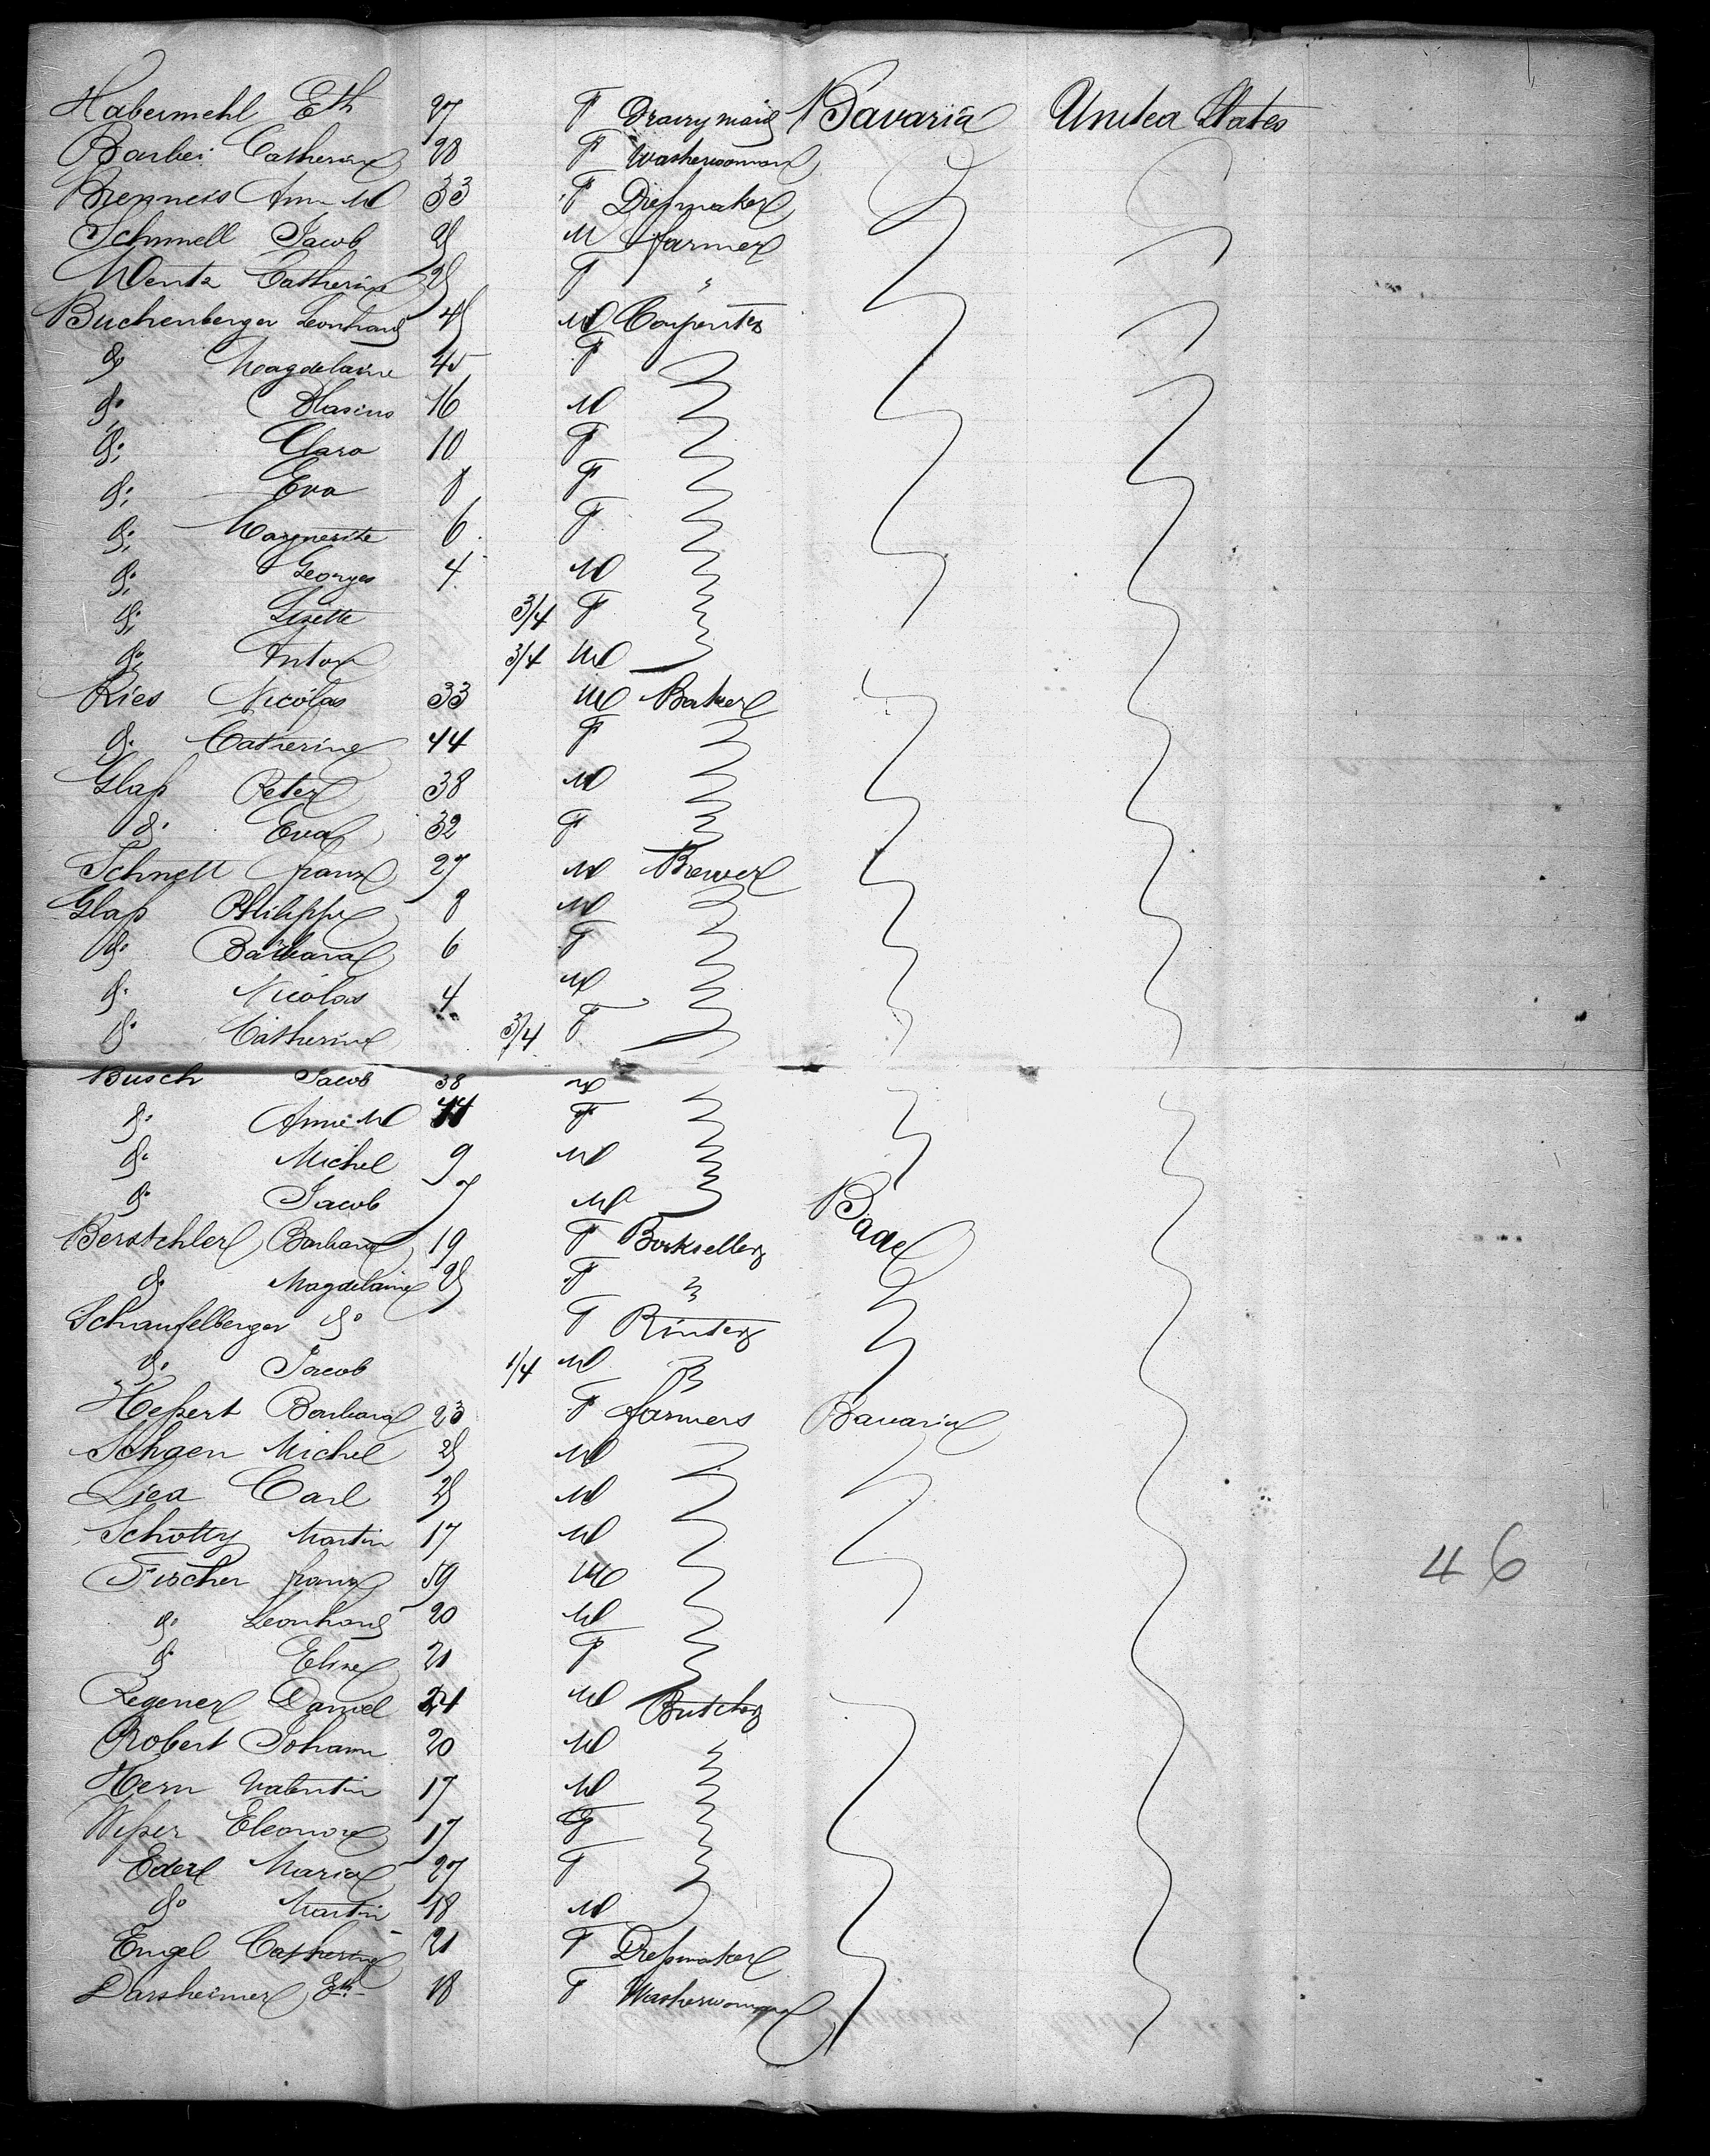 Habermehl Eth 27 F Dairymaid Bavaria United States
Barbei Catherine 28 F Washerwoman
Brenneis Ann M 33 F Dressmaker
Schmell Jacob 25 M farmer
Wentz Catherine 25 F "
Buchenberger Leonhard 45 M Carpenter
do Magdelaine 45 F
do Blasius 16 M
do Clara 10 F
do Eva 8 F
do Marguerite 6 F
do Georges 4 M
do Lisette 3/4 F
do Anton 3/4 M
Ries Nicolas 33 M Baker
do Catherine 44 F
Glass Peter 38 M
do Eva 32 F
Schnell franz 27 M Brewer
Glass Philippe 8 M
do Barbara 6 F
do Nicolas 4 M
do Catherine 3/4 F
Busch Jacob 38 M
do Anne M 44 F
do Michel 9 M
do Jacob 7 M Bade
Berstchler Barbara 19 F Bookseller
do Magdelaine 25 F "
Schaufelberger do F
do Jacob 1/4 M
Hessert Barbara 23 F farmers Bavaria
Schaen Michel 25 M
Carl 25 M
Schotty Martin 17 M
Fischer franz 59 M 46
do Leonhard 20 M
do Elise 21 F
Regener Daniel 24 M Butcher
Robert Johann 20 M
Hern Valentin 17 M
Wisser Eleonore 17 F
Eder Maria 27 F
do Martin 18 M
Engel Catherine 21 F Dressmaker
Darsheimer Eth 18 F Washerwoman